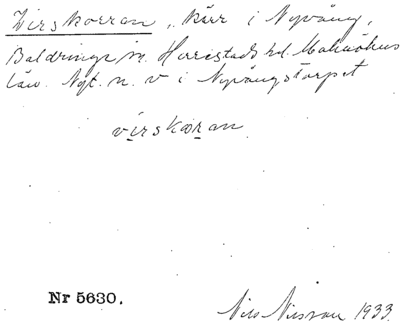 Virskorran, kärr i Nyväng,
Baldringe sn. Herrestads hd. Malmöhus
län. Ngt. n. v i Nyvängstorpet
virskæran
Nr 5630.
Nils Nilsson 1933.